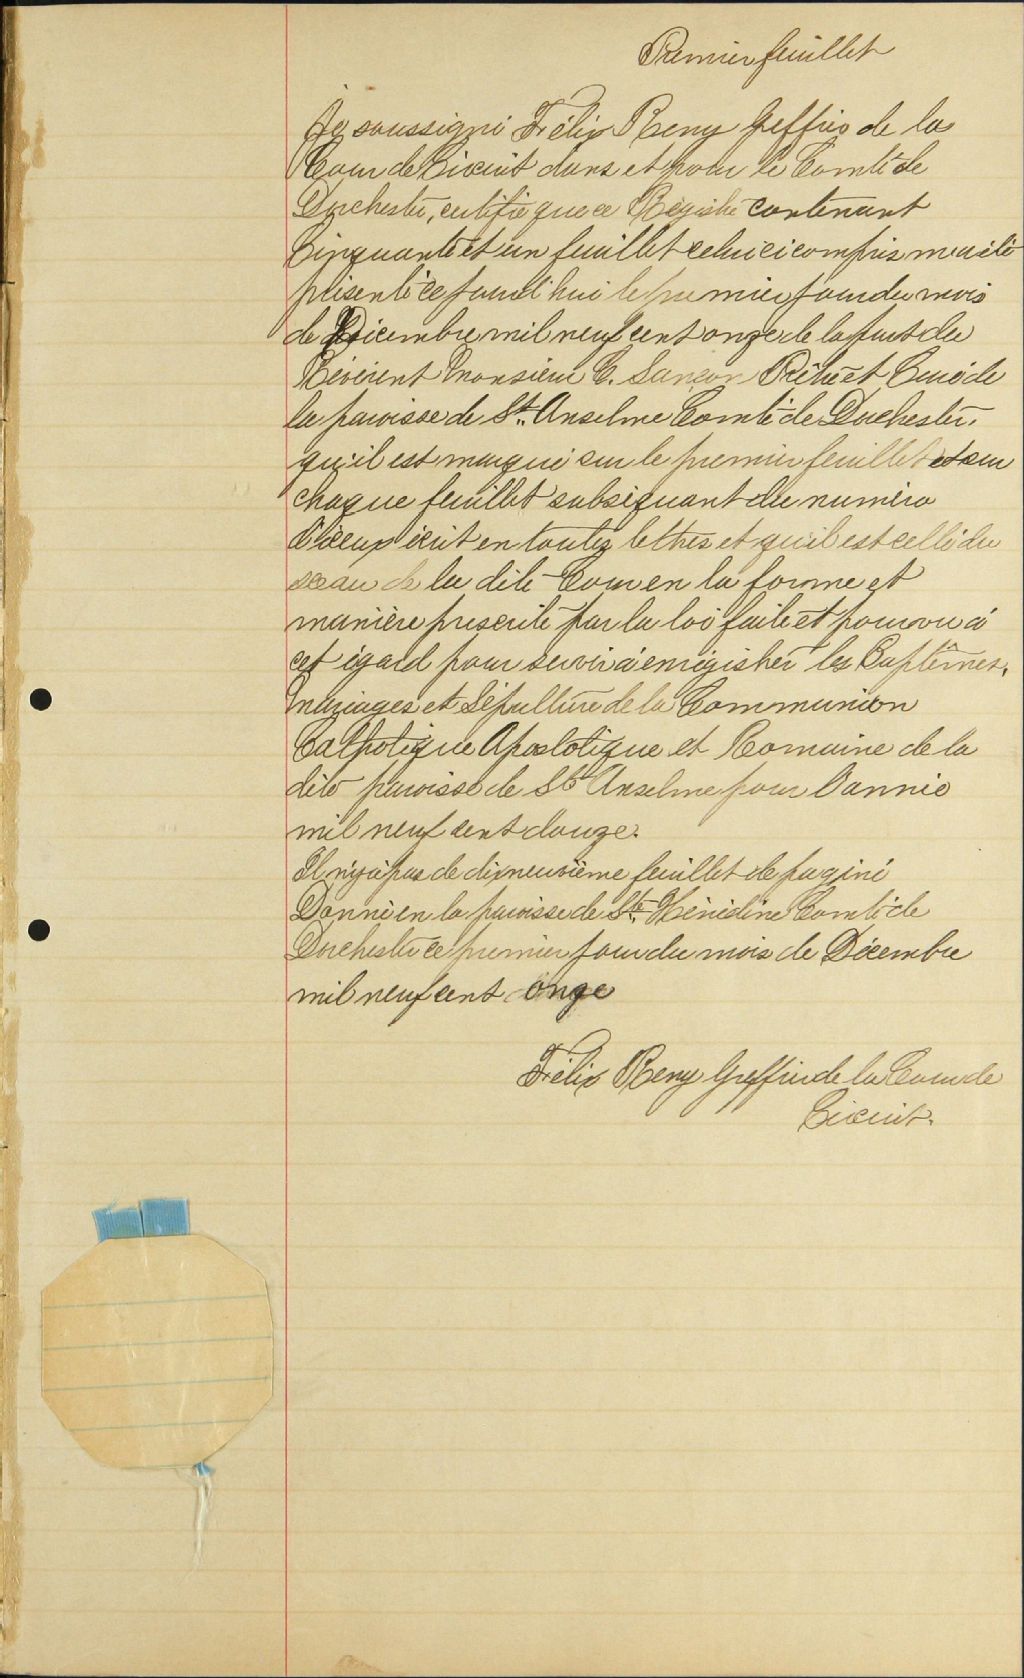 Premier feuillet
Je soussigné Félix Remy Greffier de la
Cour de Circuit dans et pour le Comté de
Dorchester, certifie que ce Régistre contenant
Cinquante et un feuillet celui ci compris m'a été
présenté ce jourd'hui le premier jour du mois
de Décembre mil neuf cent onze de la part du
Révérent Monsieur C. Sanson Prêtre et Curé de
la paroisse de St. Anselme Comté de Dorchester.
qu'il est marqué sur le premier feuillet et sur
chaque feuillet subséquant du numéro
d'iceux écrit en toutes lettres et qu'il est cellé du
sceau de la dite Cour en la forme et
manière prescrite par la loi faite et pourvu à
cet égard pour servir à enrégistrer les Baptêmes,
Mariages et Sépulture de la Communion
Catholique Apostolique et Romaine de la
dite paroisse de St Anselme pour l'année
mil neuf cent douze.
Il n'y a pas de dixneuvième feuillet de paginé
Donné en la paroisse de Ste Hénédine Comté de
Dorchester ce premier jour du mois de Décembre
mil neuf cent onze
Félix Remy Greffier de la Cour de
Circuit.